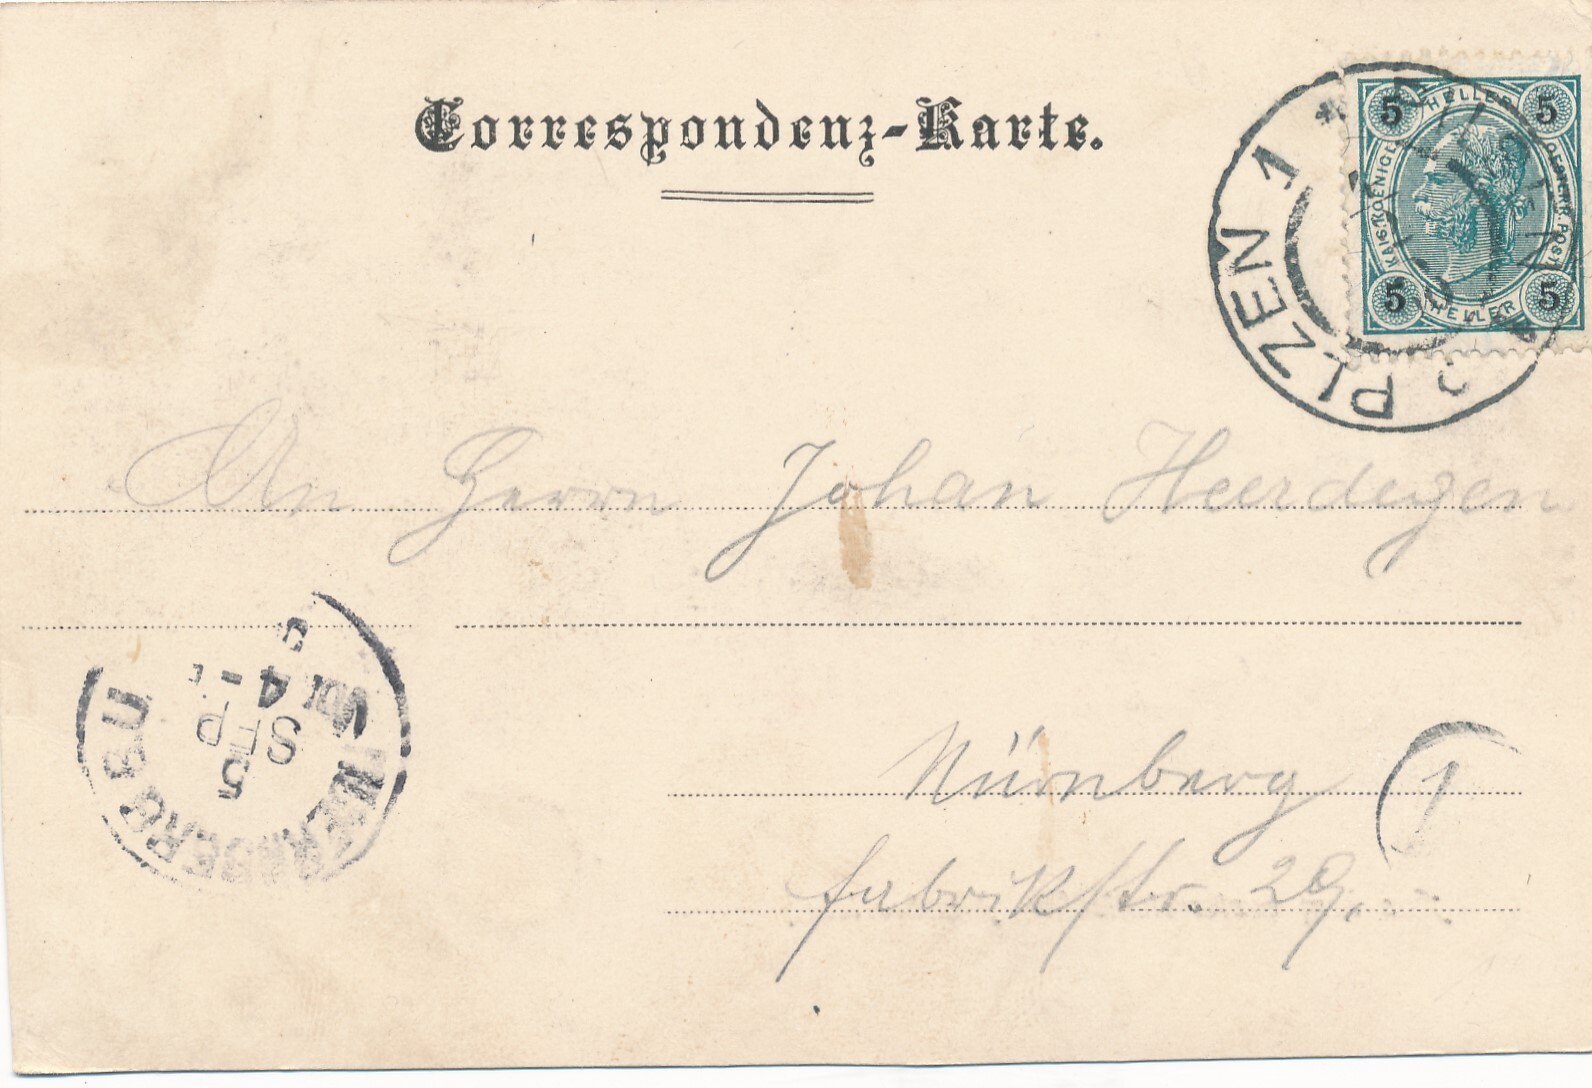 Correspondenz-Karte.
5 HELLER 5
KAIS. KOENIGL. OESTERR. POST
5 HELLER 5
PLZEN 1
An Herrn Johan Heerdegen
Nürnberg
fabrikstr. 29.
1
5
SEP
4-